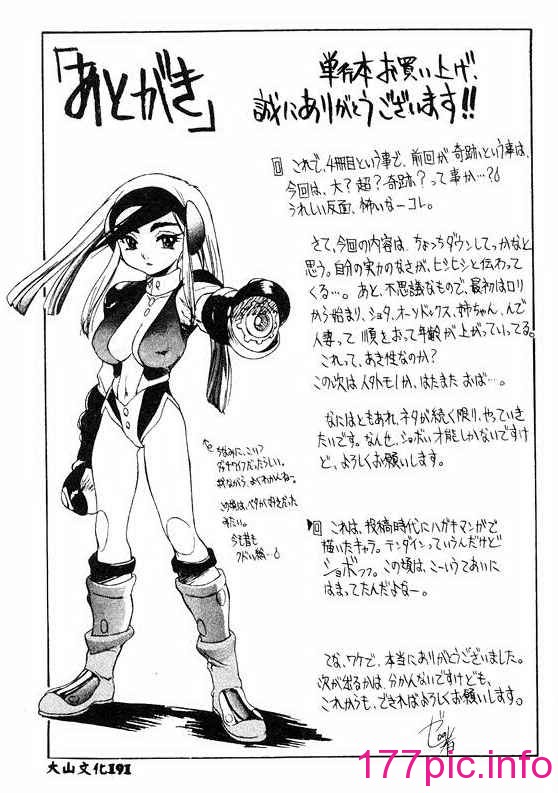 「あとがき」
単行本お買い上げ、
誠にありがとうございます!!
これで、4冊目という事で、前回が奇跡という事は、
今回は、大?超?奇跡?って事か…?
うれしい反面、怖いなーコレ。
さて、今回の内容は、ちょっちダウンしてっかなと
思う。自分の実力のなさが、ヒシヒシと伝わって
くる…。あと、不思議なもので、最初はロリ
から始まり、ショタ、オーソドックス、姉ちゃん、んで
人妻って順をおって年齢が上がっていってる。
これって、あき性なのか?
この次は
はたまたおば…。
なにはともあれ、ネタが続く限り、やっていき
たいです。なんせ、ショボい才能しかないですけ
ど、よろしくお願いします。
ちなみに、こいつ
だったらしい。
我ながら、よくわかんねー。
この頃は、
が好きだった
みたい。
今も昔も
これは、投稿時代にハガキマンガで
描いたキャラ。テンダインっていうんだけど
ショボッ。この頃は、こーいうてあいに
はまってたんだよなー。
てな、ワケで、本当にありがとうございました。
次が出るかは、分かんないですけども、
これからも、できればよろしくお願いします。
大山文化191
177pic.info